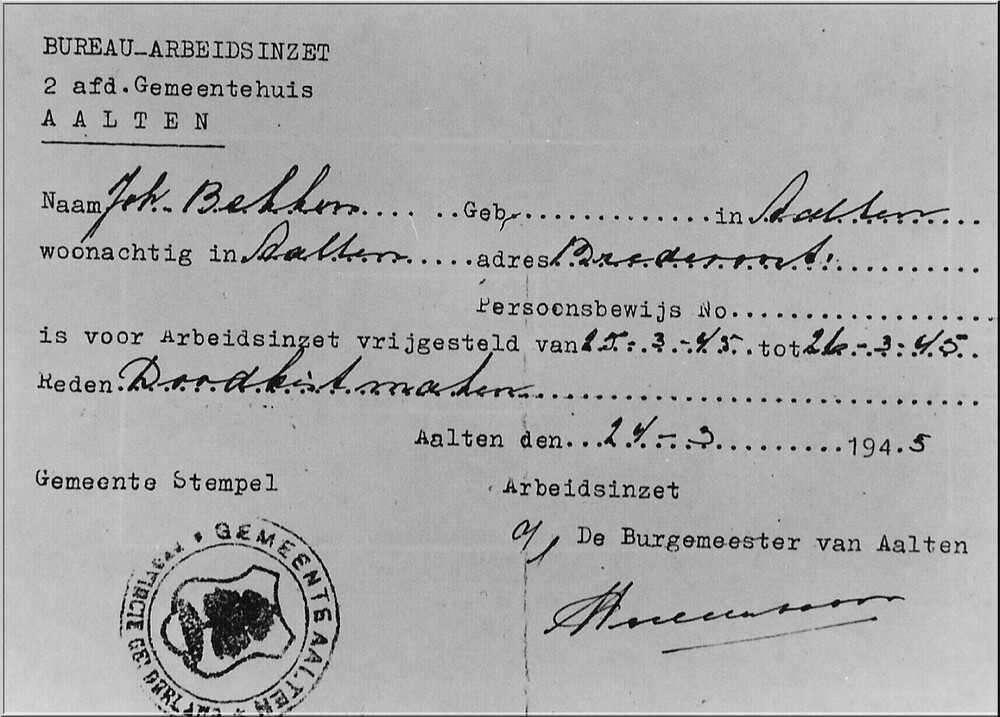 BUREAU-ARBEIDSINZET
2 afd.Gemeentehuis
AALTEN
Naam Joh. Bekken..... ..Geb................in Aalten....
woonachtig in Aalten.....adres Bredevoort.............
Persoonsbewijs No...................
is voor Arbeidsinzet vrijgesteld van 25-3-45. tot 26-3-45..
Reden. Doodkist maken..................................
Aalten den...24-3..........194.5
Gemeente Stempel
Arbeidsinzet
De Burgemeester van Aalten
GEMEENTE AALTEN * PROVINCIE GELDERLAND *